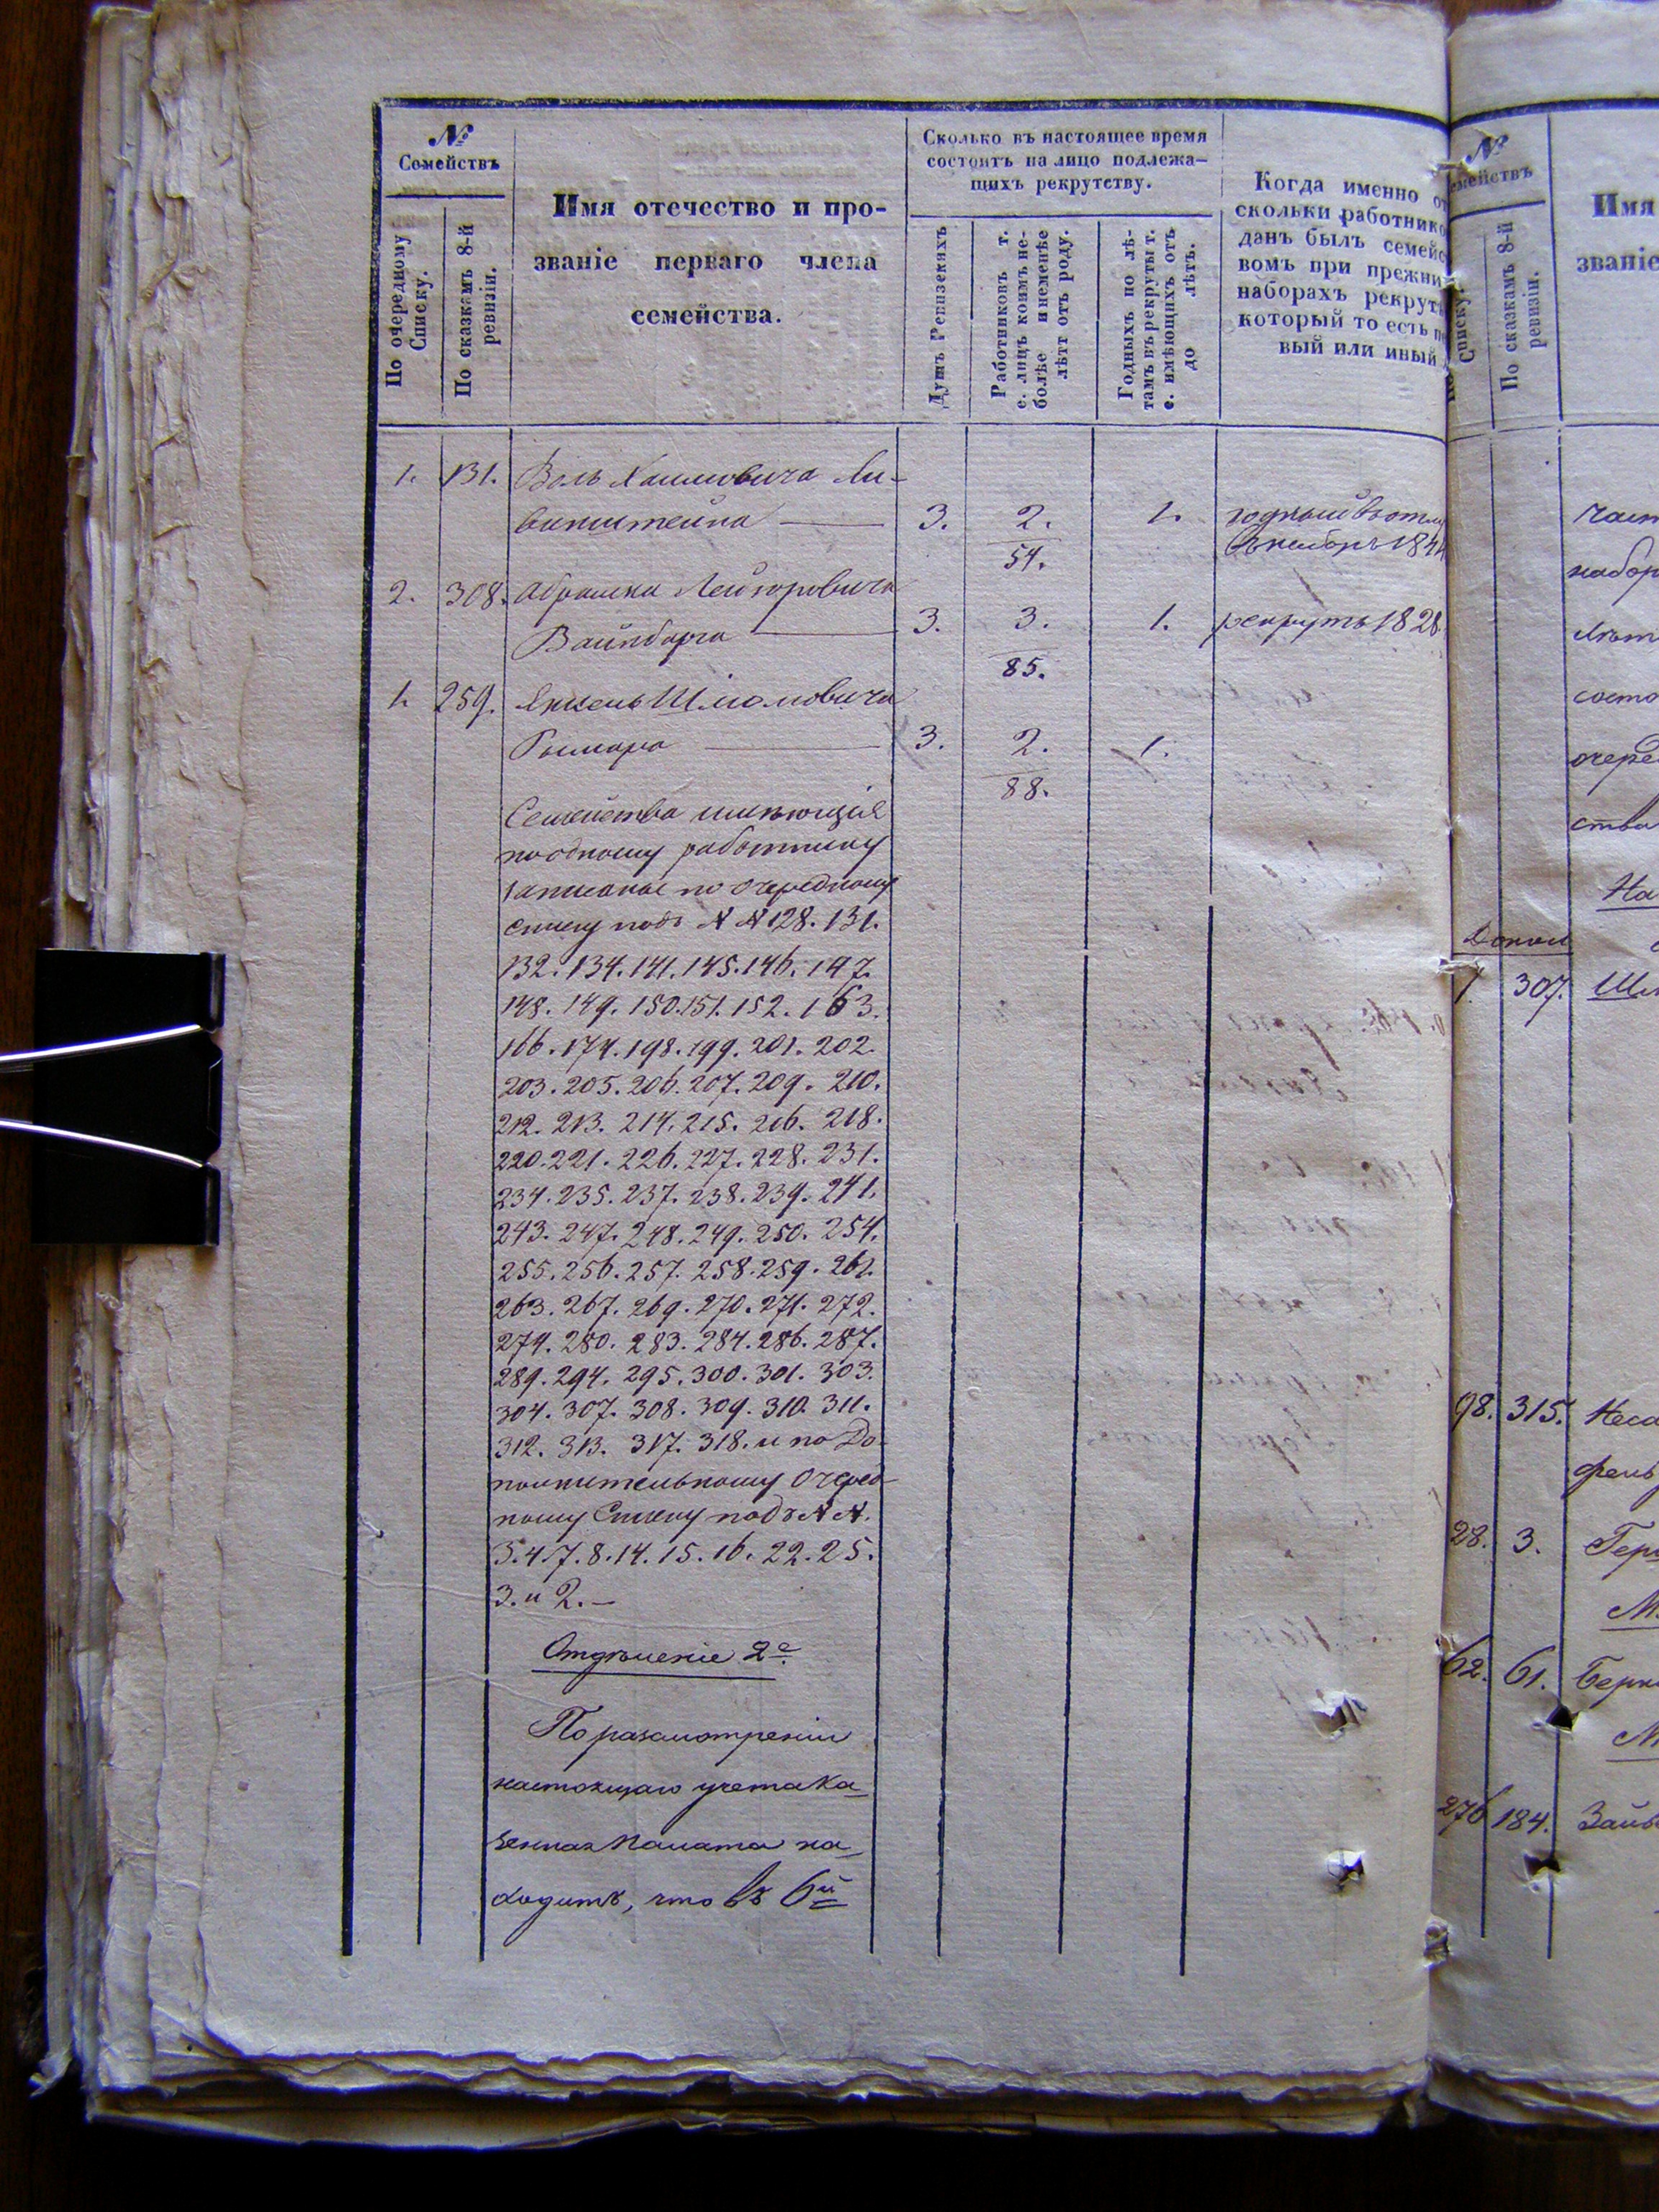 №
Семействъ
По очередному
Списку.
По сказкамъ 8-й
ревизіи.
Имя отечество и про-
званіе перваго члена
семейства.
Сколько въ настоящее время
состоитъ на лицо подлежа-
щихъ рекрутству.
Душъ Ревизскихъ
Работниковъ т.
е. лицъ коимъ не-
болѣе и неменѣе
лѣтъ отъ роду.
Годныхъ по лѣ-
тамъ въ рекруты т.
е. имѣющихъ отъ
до лѣтъ.
Когда именно от
скольки работнико
данъ былъ семейс
вомъ при прежни
наборахъ рекрут
который то есть пе
вый или иный
1. 131. Воль Хаимовича Ли-
ванштейна — 3. 2. 1.
54.
2. 308. Абрамка Лейзоровича
Вайнбарга — 3. 3. 1. рекрутъ 1828.
85.
1. 259. Янкель Шліомовича
Гимара — 3. 2. 1.
88.
Семейства имѣющія
поодному работнику
записаные по очередному
списку подъ № № 128. 131.
132. 134. 141. 145. 146. 147.
148. 149. 150. 151. 152. 163.
166. 174. 198. 199. 201. 202.
203. 205. 206. 207. 209. 210.
212. 213. 214. 215. 216. 218.
220. 221. 226. 227. 228. 231.
234. 235. 237. 238. 239. 241.
243. 247. 248. 249. 250. 254.
255. 256. 257. 258. 259. 261.
263. 267. 269. 270. 271. 272.
274. 280. 283. 284. 286. 287.
289. 294. 295. 300. 301. 303.
304. 307. 308. 309. 310. 311.
312. 313. 317. 318. и по До-
полнительному Очеред-
ному Списку подъ № №.
3. 4. 7. 8. 14. 15. 16. 22. 25.
3. и 2. —
Отдѣленіе 2е.
По разсмотреніи
настоящаго учета Ка-
зенная Палата на-
ходитъ, что въ 6й
№
емействъ
Списку
По сказкамъ 8-й
ревизіи.
Имя
званіе
набор
состо
очере
ства
На
Допол
1. 307.
98. 315.
28. 3.
62. 61. Берк
276. 184.